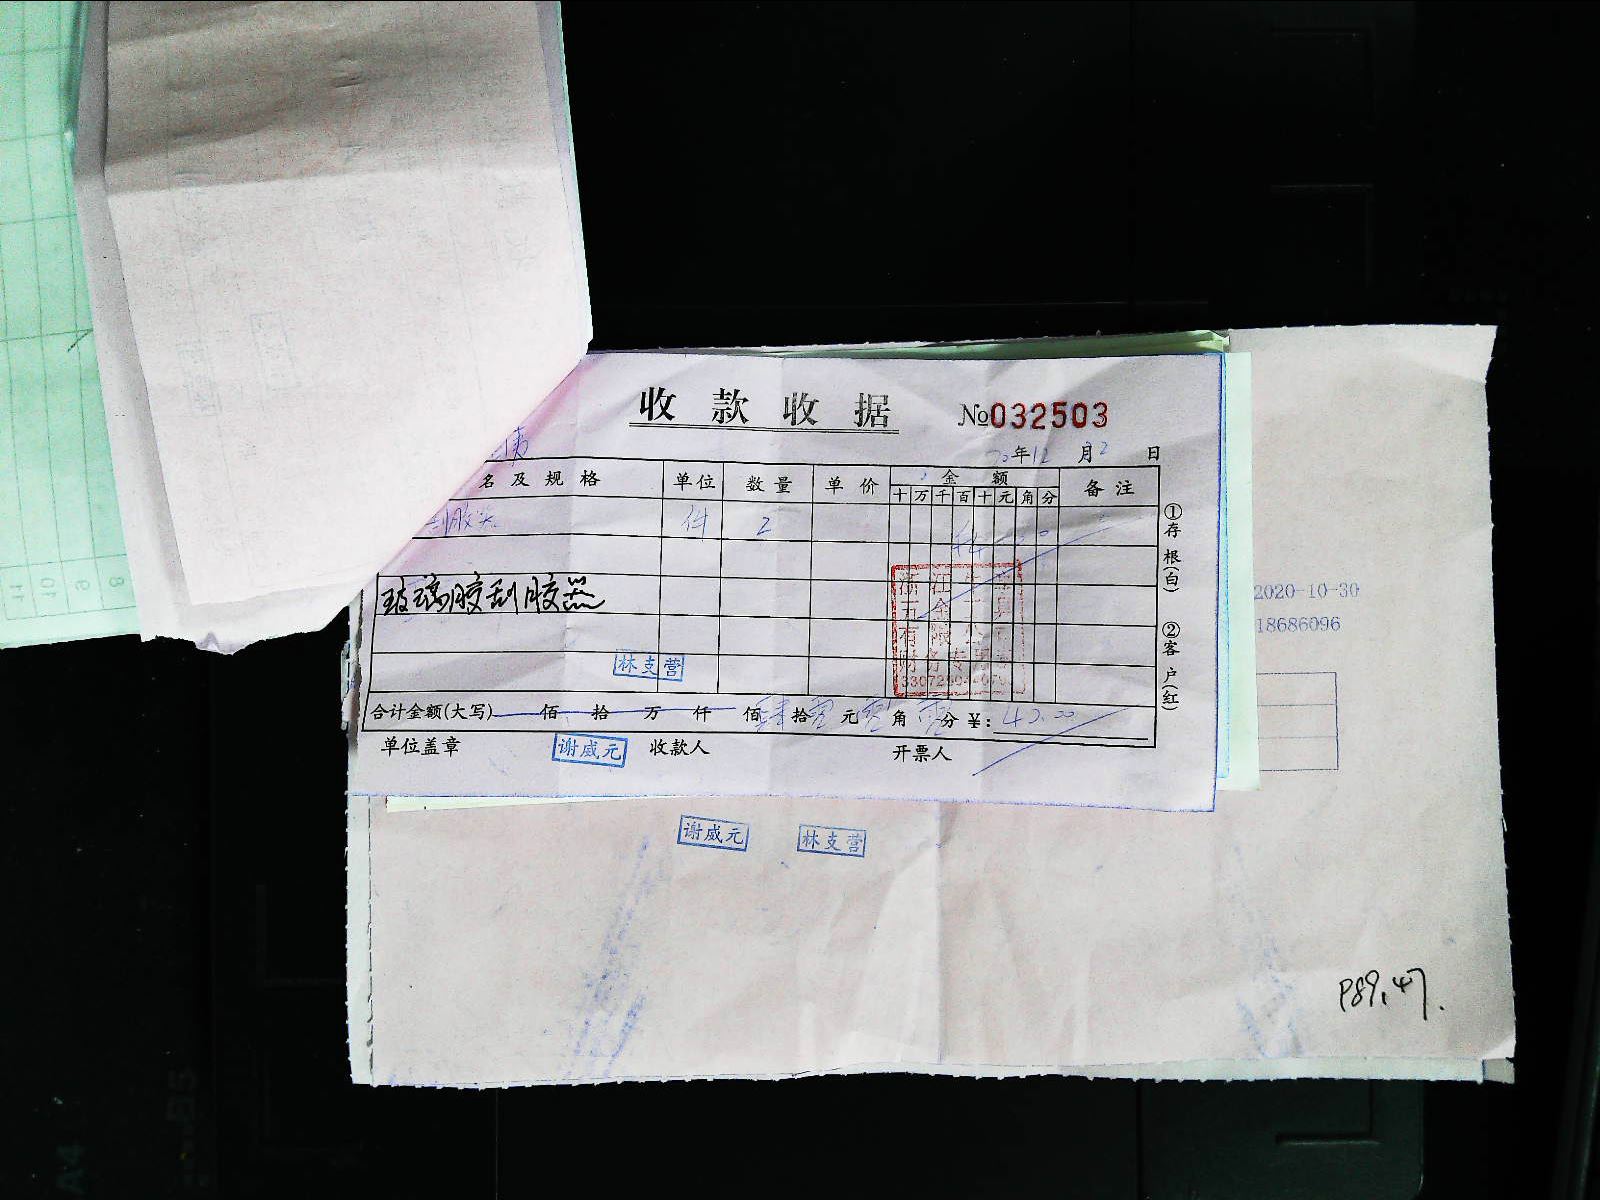 收款收据 №032503
20年12月2日
名及规格 单位 数量 单价 金额 备注
十万千百十元角分
刮胶头 件 2
①存根(白)
②客户(红)
玻璃胶刮胶器
财务专用章
林支营
合计金额(大写) 佰拾万仟佰肆拾零元零角零分 ¥: 40.00
单位盖章 谢威元 收款人 开票人
2020-10-30
18686096
谢威元 林支营
P89,47.
8
9
10
11
A4
B5